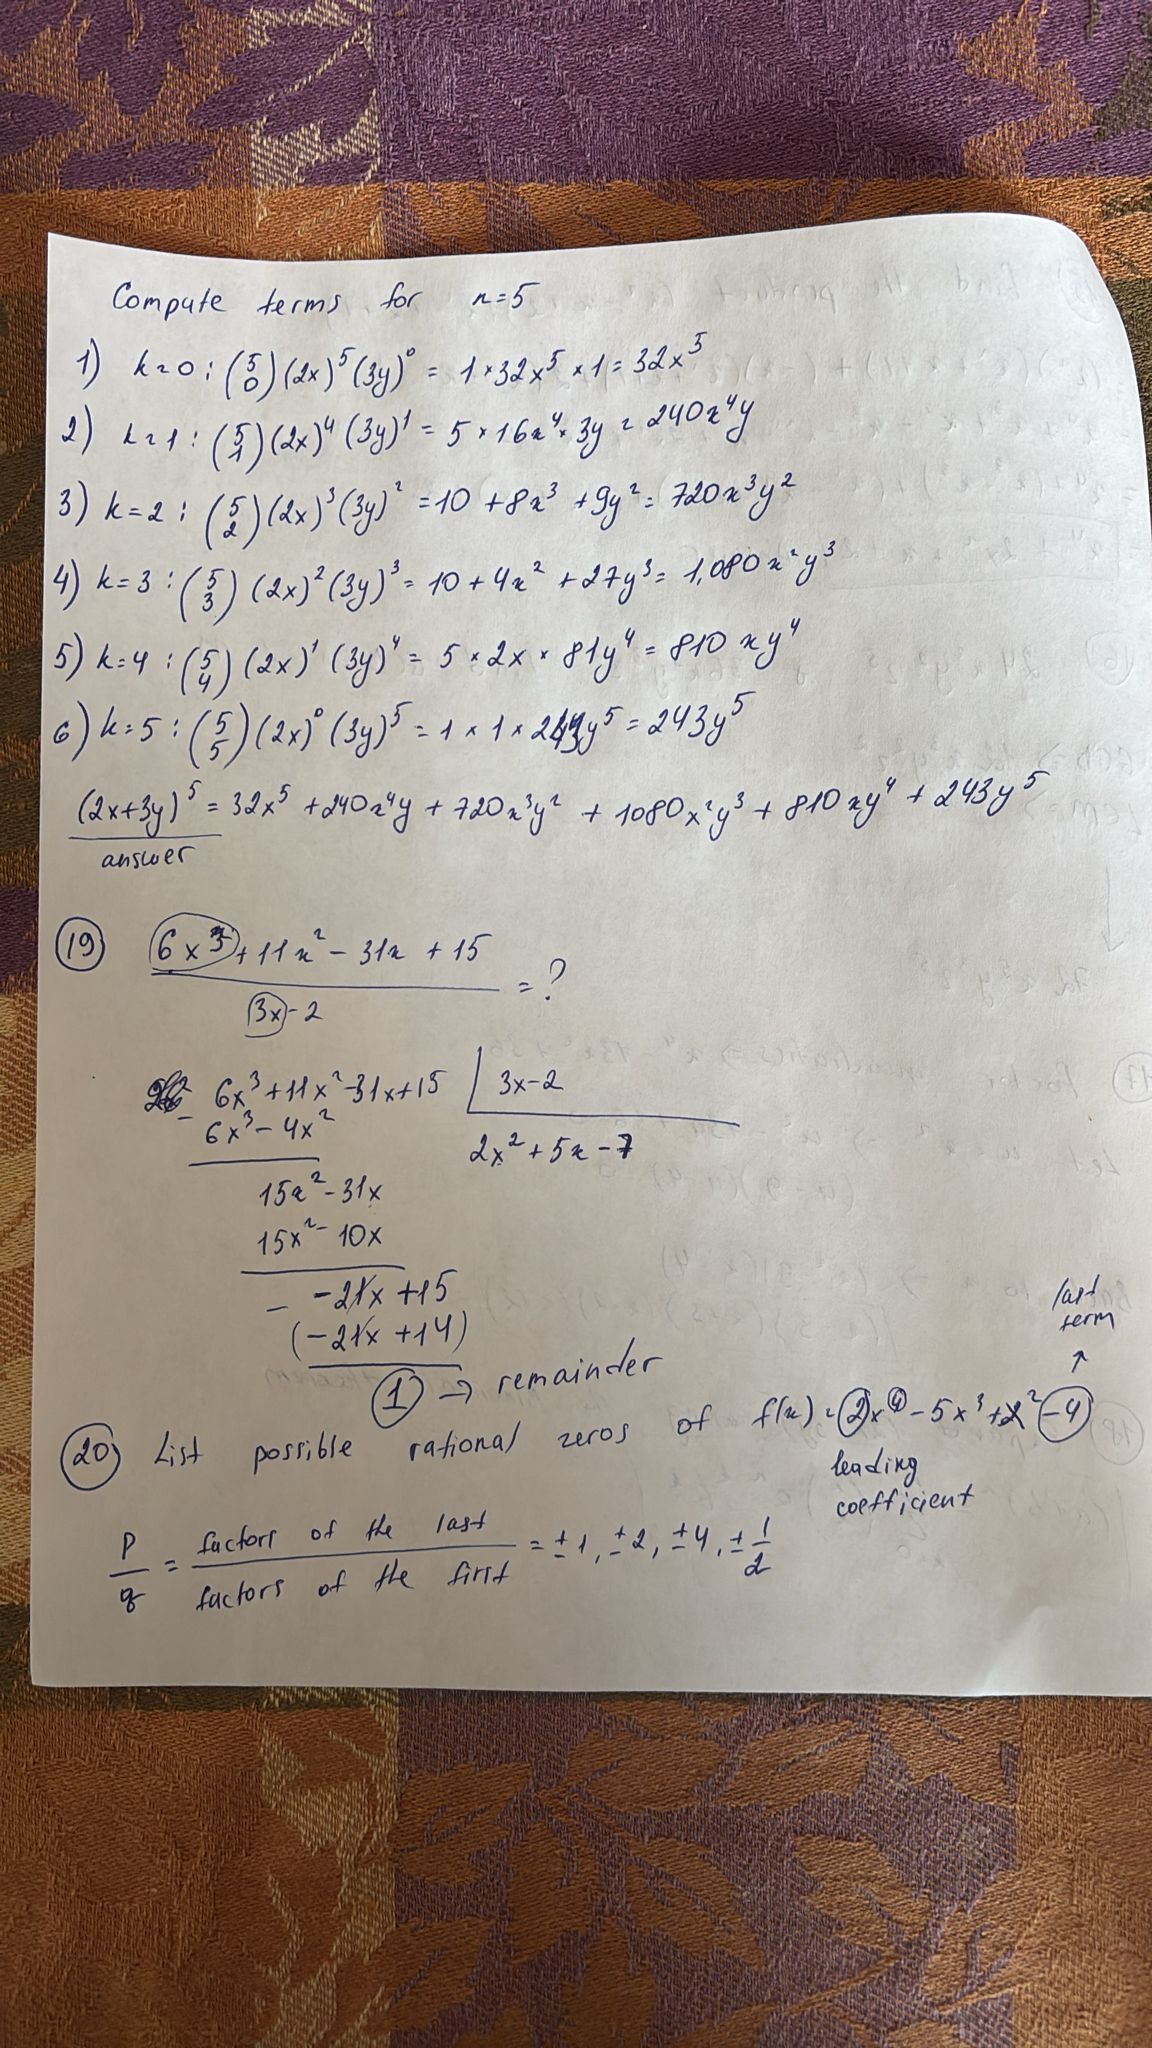 Compute terms for n=5
1) k=0 : (5 0) (2x)^5 (3y)^0 = 1 × 32x^5 × 1 = 32x^5
2) k=1 : (5 1) (2x)^4 (3y)^1 = 5 × 16x^4 × 3y = 240x^4y
3) k=2 : (5 2) (2x)^3 (3y)^2 = 10 + 8x^3 + 9y^2 = 720x^3y^2
4) k=3 : (5 3) (2x)^2 (3y)^3 = 10 + 4x^2 + 27y^3 = 1,080x^2y^3
5) k=4 : (5 4) (2x)^1 (3y)^4 = 5 × 2x × 81y^4 = 810 xy^4
6) k=5 : (5 5) (2x)^0 (3y)^5 = 1 × 1 × 243y^5 = 243y^5
(2x+3y)^5 = 32x^5 + 240x^4y + 720x^3y^2 + 1080x^2y^3 + 810xy^4 + 243y^5
answer
19 6x^3 + 11x^2 - 31x + 15
= ?
3x - 2
6x^3 + 11x^2 - 31x + 15 3x - 2
- 6x^3 - 4x^2
2x^2 + 5x - 7
15x^2 - 31x
15x^2 - 10x
-21x + 15
- (-21x + 14)
1 → remainder
last
term
↑
20 List possible rational zeros of f(x) = 2x^4 - 5x^3 + x^2 - 4
leading
coefficient
p/q = factors of the last / factors of the first = ±1, ±2, ±4, ±1/2